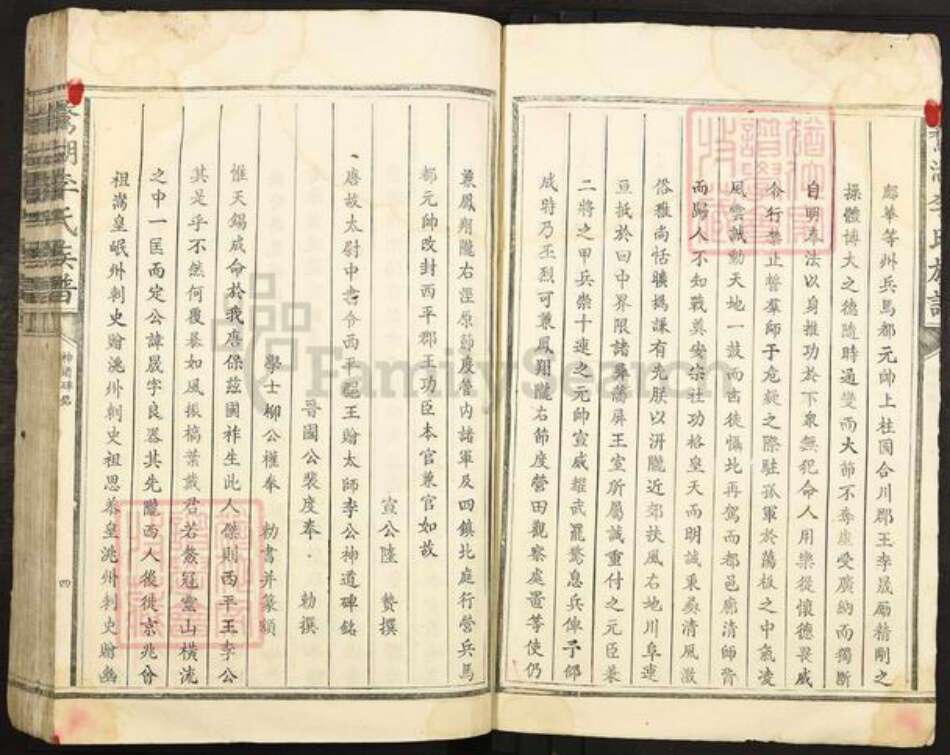 鄜華等州兵馬都元帥上柱國合川郡王李晟勵精剛之
操體博大之德隨時通變而大節不奪虛受廣納而獨斷
自明奉法以身推功於下衆無犯命人用樂從懷德畏威
令行禁止誓羣師于危疑之際駐孤軍於蕩板之中氣凌
風雲誠動天地一鼓而凶徒懾北再駕而都邑廓清師脊
而歸人不知戰奠安宗社功格皇天而明誠東蘇清風激
俗雅尚恬曠撝謙有先朕以汧隴近郊扶風右地川阜連
亘抵於回中界限諸彝藩屏王室所屬誠重付之元臣兼
二將之甲兵崇十連之元帥宣威耀武罷驚息兵俾予仰
成時乃丕烈可兼鳳翔隴右節度營田觀察處置等使仍
兼鳳翔隴右涇原節度管內諸軍及四鎮北庭行營兵馬
都元帥改封西平郡王功臣本官兼官如故
宣公陸 贄撰
唐故太尉中書令西平郡王贈太師李公神道碑銘
晉國公裴度奉 勅撰
學士柳公權奉 勅書并篆額
惟天錫成命於我唐保茲國祚生此人傑則西平王李公
其是乎不然何覆暴如風振槁葉戴君若鰲冠靈山橫流
之中一匡而定公諱晟字良器其先隴西人後徙京兆曾
祖嵩皇岷州刺史贈洮州刺史祖思恭皇洮州刺史贈幽
李氏族譜
神道碑銘
四
李氏族譜
FamilySearch